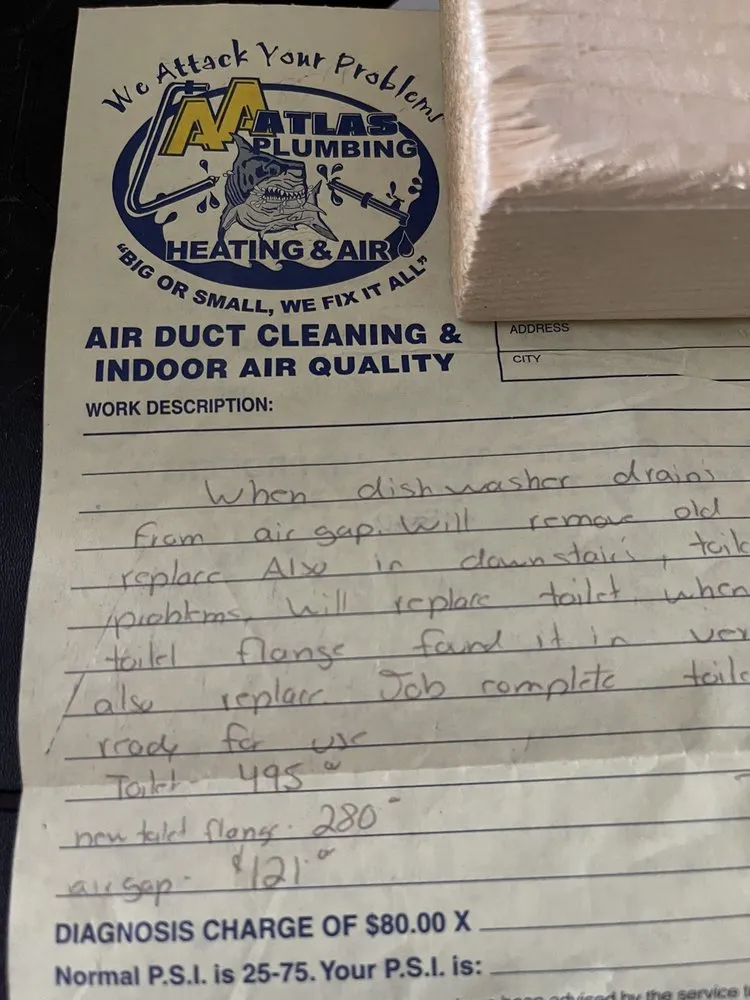 We Attack Your Problems
AA ATLAS
PLUMBING
HEATING & AIR
"BIG OR SMALL, WE FIX IT ALL"
AIR DUCT CLEANING &
INDOOR AIR QUALITY
ADDRESS
CITY
WORK DESCRIPTION:
When dishwasher drains
from air gap. Will remove old
replace Also in downstairs, toil
problems. Will replace toilet. when
toilet flange found it in ver
also replace Job complete toile
ready for use
Toilet - 495
new toilet flange - 280
air gap - $121
DIAGNOSIS CHARGE OF $80.00 X
Normal P.S.I. is 25-75. Your P.S.I. is:
been advised by the service